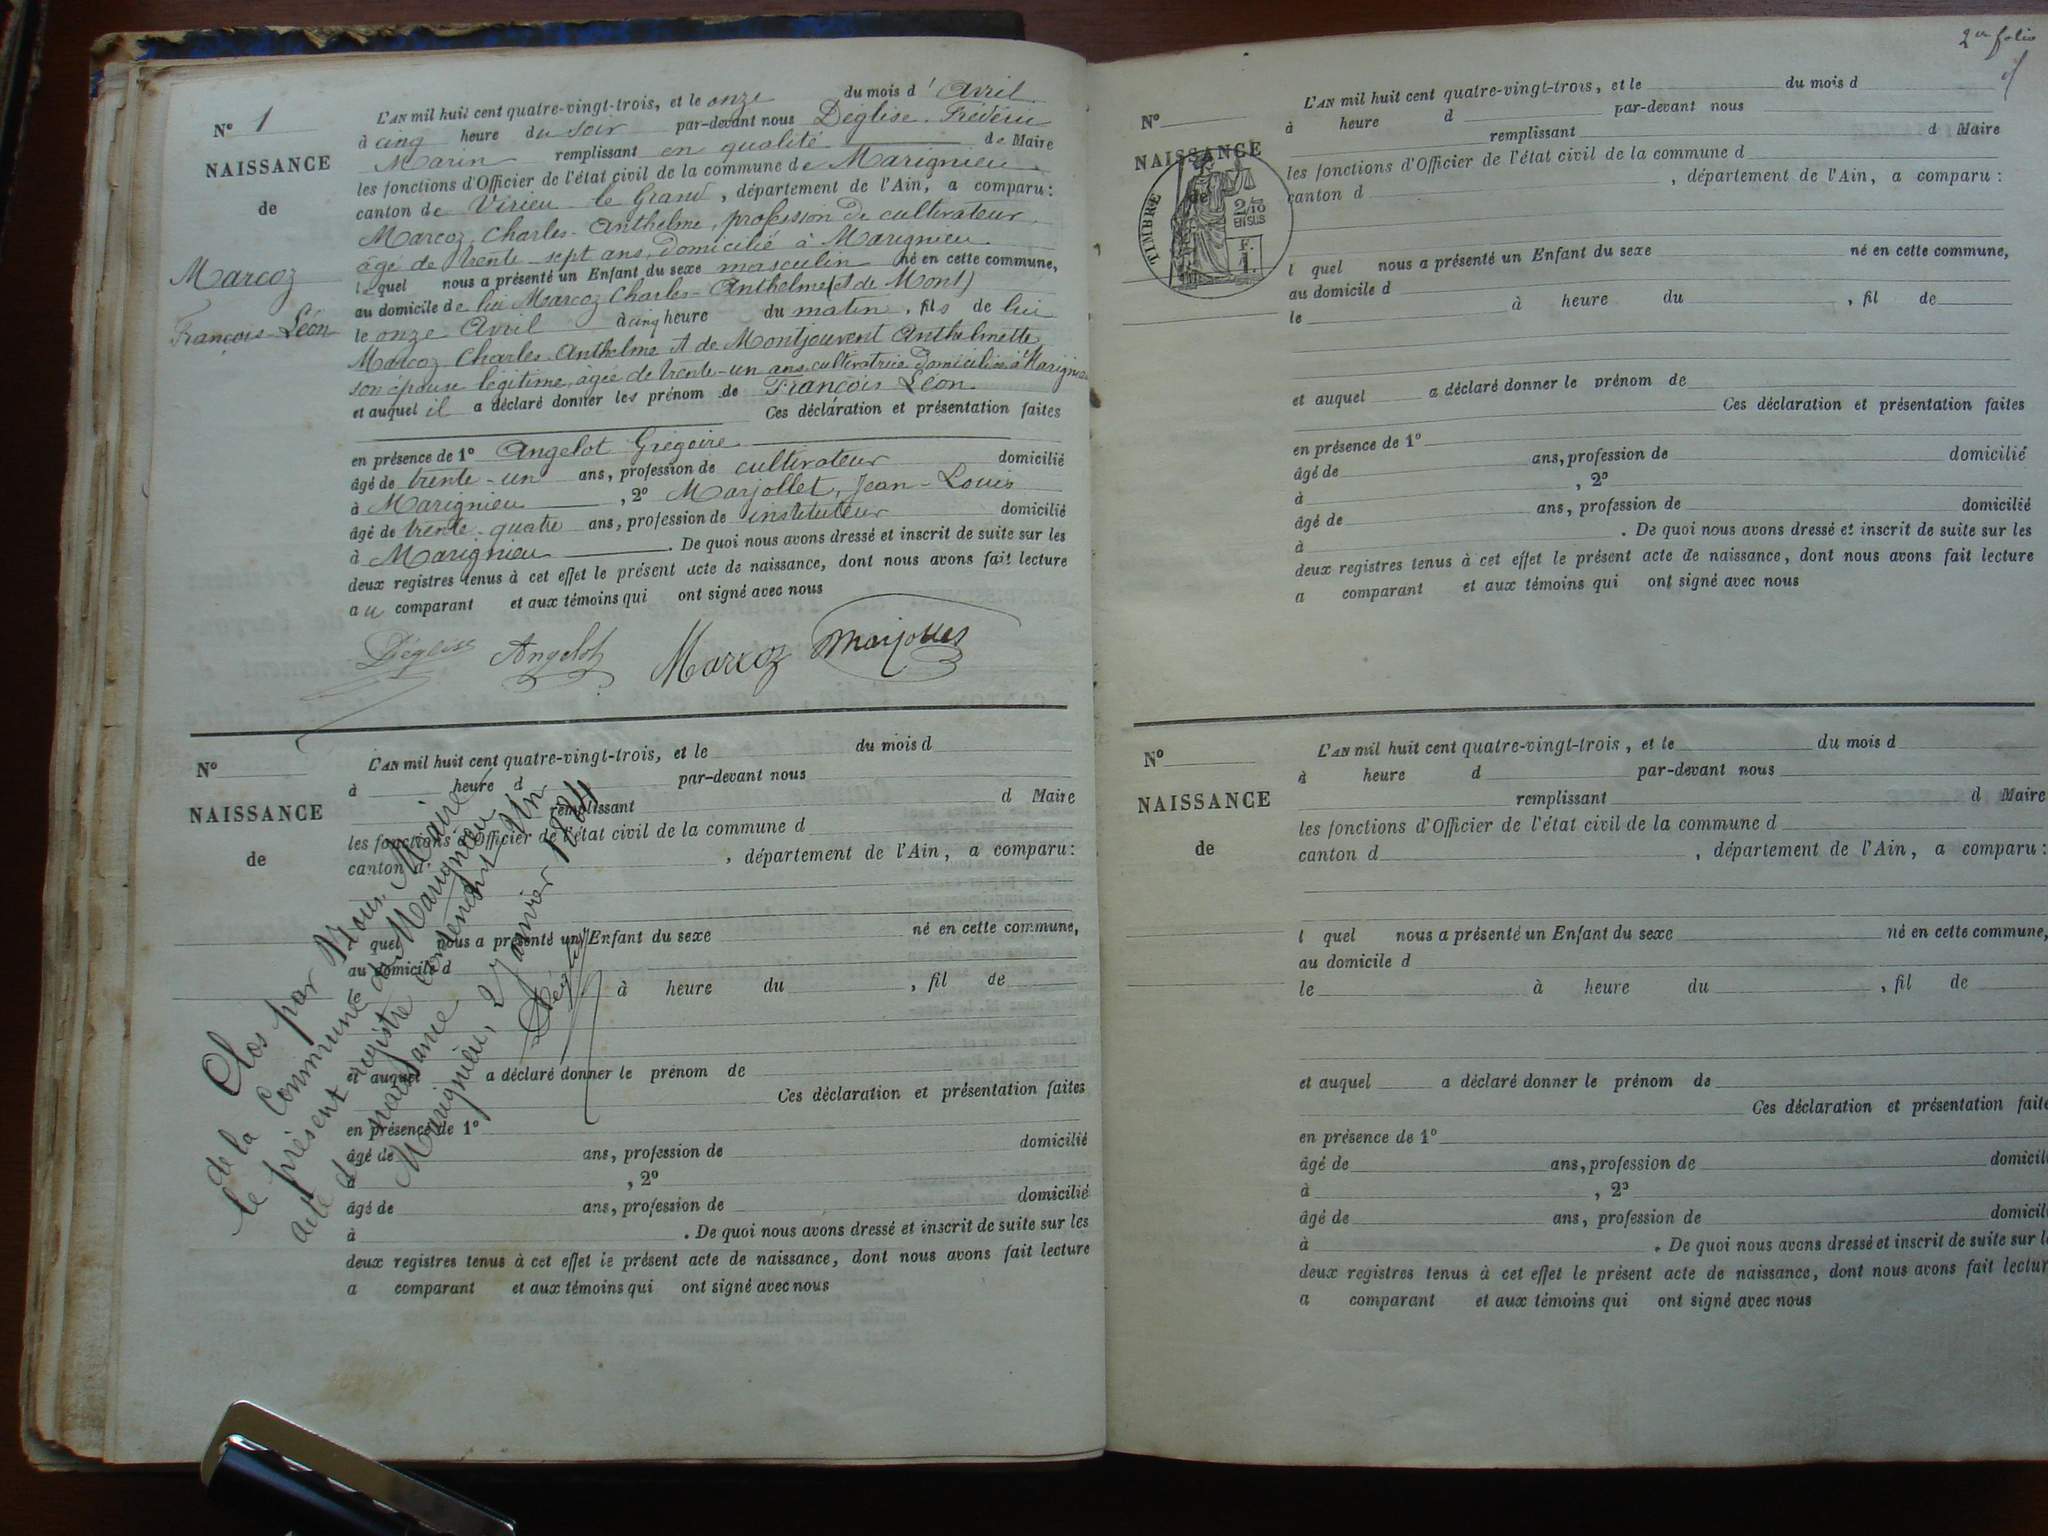 N° 1
NAISSANCE
de
Marcoz
François-Léon
L'AN mil huit cent quatre-vingt-trois, et le onze du mois d'Avril
à cinq heure du soir par-devant nous Déglise Frédéric
Marin remplissant en qualité de Maire
les fonctions d'Officier de l'état civil de la commune de Marignieu
canton de Virieu-le-Grand, département de l'Ain, a comparu:
Marcoz Charles-Anthelme, profession de cultivateur
âgé de trente-sept ans, domicilié à Marignieu
lequel nous a présenté un Enfant du sexe masculin né en cette commune,
au domicile de lui Marcoz Charles-Anthelme (et de Mont)
le onze Avril à cinq heure du matin, fils de lui
Marcoz Charles-Anthelme et de Montjouvent Anthelmette
son épouse légitime, âgée de trente-un ans cultivatrice domiciliée à Marignieu
et auquel il a déclaré donner les prénom de François Léon.
Ces déclaration et présentation faites
en présence de 1° Angelot Grégoire
âgé de trente-un ans, profession de cultivateur domicilié
à Marignieu, 2° Marjollet, Jean-Louis
âgé de trente-quatre ans, profession de instituteur domicilié
à Marignieu. De quoi nous avons dressé et inscrit de suite sur les
deux registres tenus à cet effet le présent acte de naissance, dont nous avons fait lecture
au comparant et aux témoins qui ont signé avec nous
Déglise Angelot Marcoz Marjollet
N°
NAISSANCE
de
L'AN mil huit cent quatre-vingt-trois, et le du mois d
à heure d par-devant nous
remplissant d Maire
les fonctions d'Officier de l'état civil de la commune d
canton d , département de l'Ain, a comparu:
l quel nous a présenté un Enfant du sexe né en cette commune,
au domicile d
à heure du , fil de
et auquel a déclaré donner le prénom de
Ces déclaration et présentation faites
en présence de 1°
âgé de ans, profession de domicilié
à , 2°
âgé de ans, profession de domicilié
à . De quoi nous avons dressé et inscrit de suite sur les
deux registres tenus à cet effet le présent acte de naissance, dont nous avons fait lecture
a comparant et aux témoins qui ont signé avec nous
Clos par Nous, Maire
de la Commune de Marignieu
le présent registre contenant Un
acte de naissance
Marignieu, 2 Janvier 1884
Déglise
2me folio
N°
NAISSANCE
de
TIMBRE
2/10
EN SUS
F.
1.
L'AN mil huit cent quatre-vingt-trois, et le du mois d
à heure d par-devant nous
remplissant d Maire
les fonctions d'Officier de l'état civil de la commune d
canton d , département de l'Ain, a comparu:
l quel nous a présenté un Enfant du sexe né en cette commune,
au domicile d
le à heure du , fil de
et auquel a déclaré donner le prénom de
Ces déclaration et présentation faites
en présence de 1°
âgé de ans, profession de domicilié
à , 2°
âgé de ans, profession de domicilié
à . De quoi nous avons dressé et inscrit de suite sur les
deux registres tenus à cet effet le présent acte de naissance, dont nous avons fait lecture
a comparant et aux témoins qui ont signé avec nous
N°
NAISSANCE
de
L'AN mil huit cent quatre-vingt-trois, et le du mois d
à heure d par-devant nous
remplissant d Maire
les fonctions d'Officier de l'état civil de la commune d
canton d , département de l'Ain, a comparu:
l quel nous a présenté un Enfant du sexe né en cette commune,
au domicile d
le à heure du , fil de
et auquel a déclaré donner le prénom de
Ces déclaration et présentation faite
en présence de 1°
âgé de ans, profession de domicil
à , 2°
âgé de ans, profession de domicil
à . De quoi nous avons dressé et inscrit de suite sur l
deux registres tenus à cet effet le présent acte de naissance, dont nous avons fait lectur
a comparant et aux témoins qui ont signé avec nous